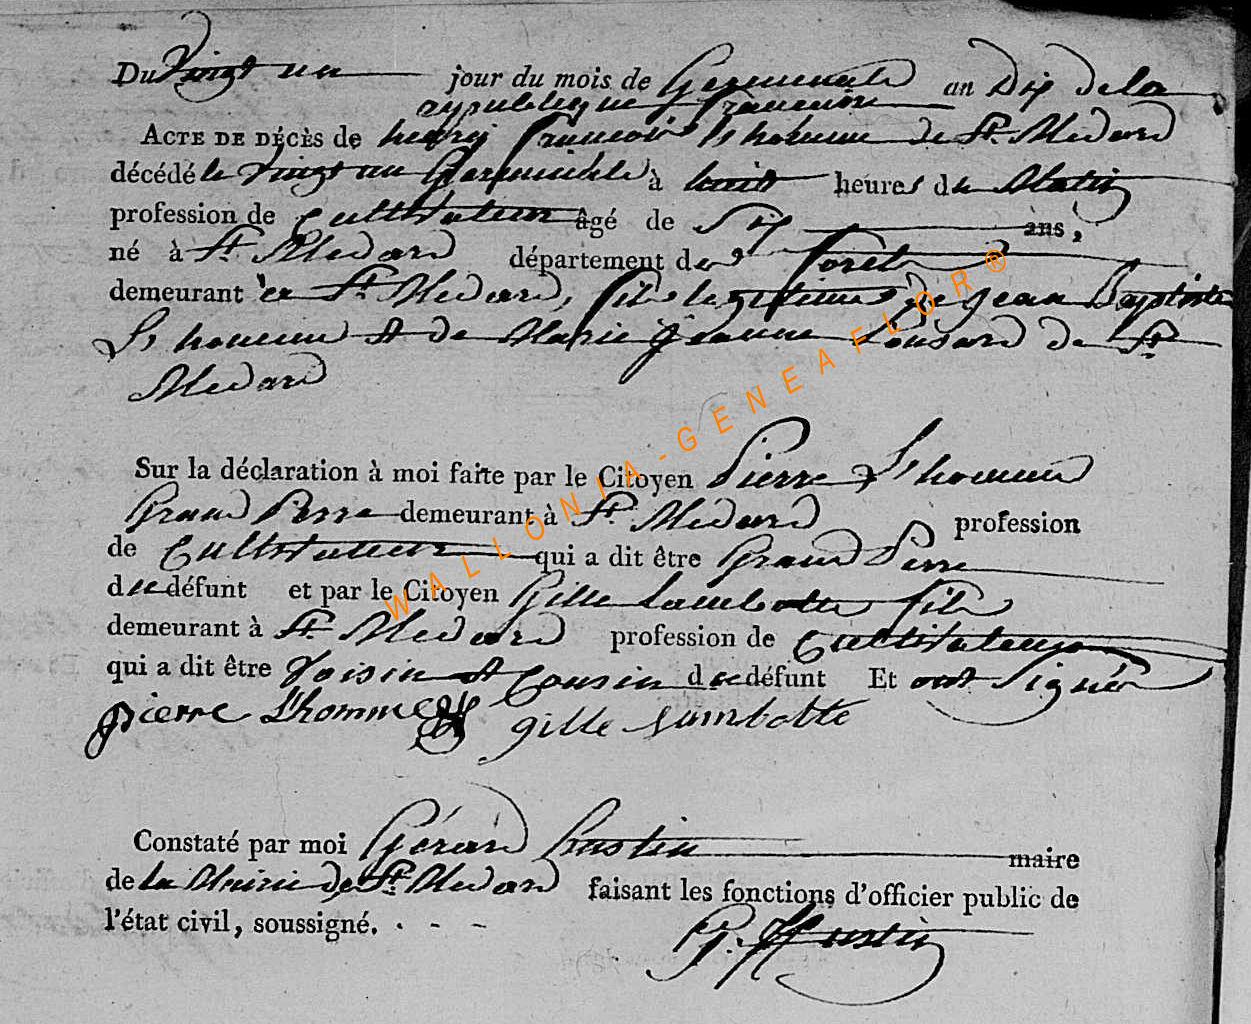 Du Vingt un jour du mois de Germinale an Dix de la
republique francaise
ACTE DE DÉCÈS de henry francois Lhomme de St. Medard
décédé le vingt un Germinale à huit heures du Matin
profession de Cultivateur âgé de Six ans,
né à St. Medard département des forets
demeurant à St. Medard, fils legitime de jean Baptiste
Lhomme et de Marie jeanne Pousard de St.
Medard
Sur la déclaration à moi faite par le Citoyen Pierre Lhomme
Grand Perre demeurant à St. Medard profession
de Cultivateur qui a dit être Grand Perre
du défunt et par le Citoyen Gille Lambotte fils
demeurant à St. Medard profession de Cultivateur
qui a dit être Voisin et Cousin du défunt Et ont Signés
pierre Lhomme gille Lambotte
Constaté par moi Gérard hustin maire
de la Mairie de St. Medard faisant les fonctions d'officier public de
l'état civil, soussigné.
G. Hustin
WALLONIA-GENEAFLOR®